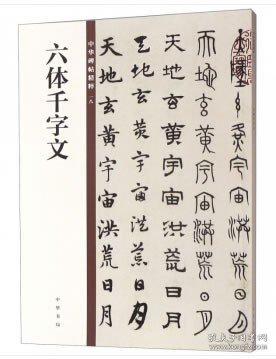 六体千字文
中华碑帖精粹
中华书局
天地玄黃宇宙洪荒日月
天地玄黃宇宙洪荒日月
天地玄黃宇宙洪荒日月
天地玄黃宇宙洪荒日月